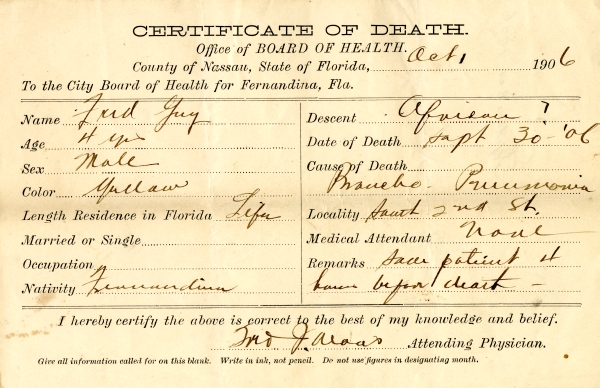 CERTIFICATE OF DEATH.
Office of BOARD OF HEALTH.
County of Nassau, State of Florida, Oct 1 1906
To the City Board of Health for Fernandina, Fla.
Name Fred Guy
Age 4 yrs
Sex Male
Color Yellow
Length Residence in Florida Life
Married or Single
Occupation
Nativity Fernandina
Descent African ?
Date of Death Sept 30 - '06
Cause of Death
Broncho. Pneumonia
Locality South 2nd St.
Medical Attendant None
Remarks Saw patient 4
hours before death -
I hereby certify the above is correct to the best of my knowledge and belief.
J. Attending Physician.
Give all information called for on this blank. Write in ink, not pencil. Do not use figures in designating month.